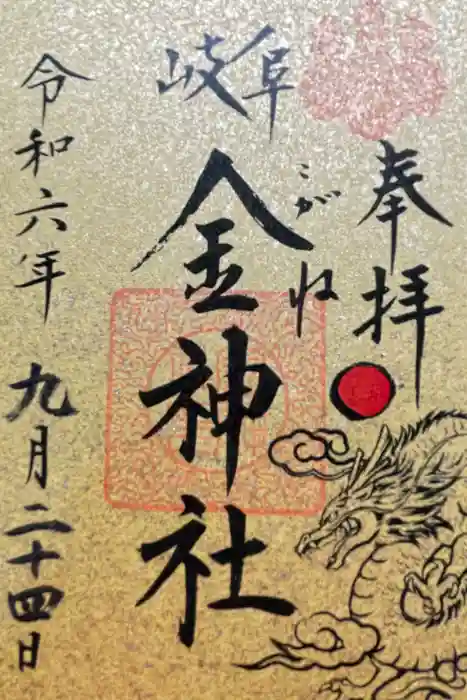 奉拝
岐阜
こがね
金神社
令和六年 九月二十四日